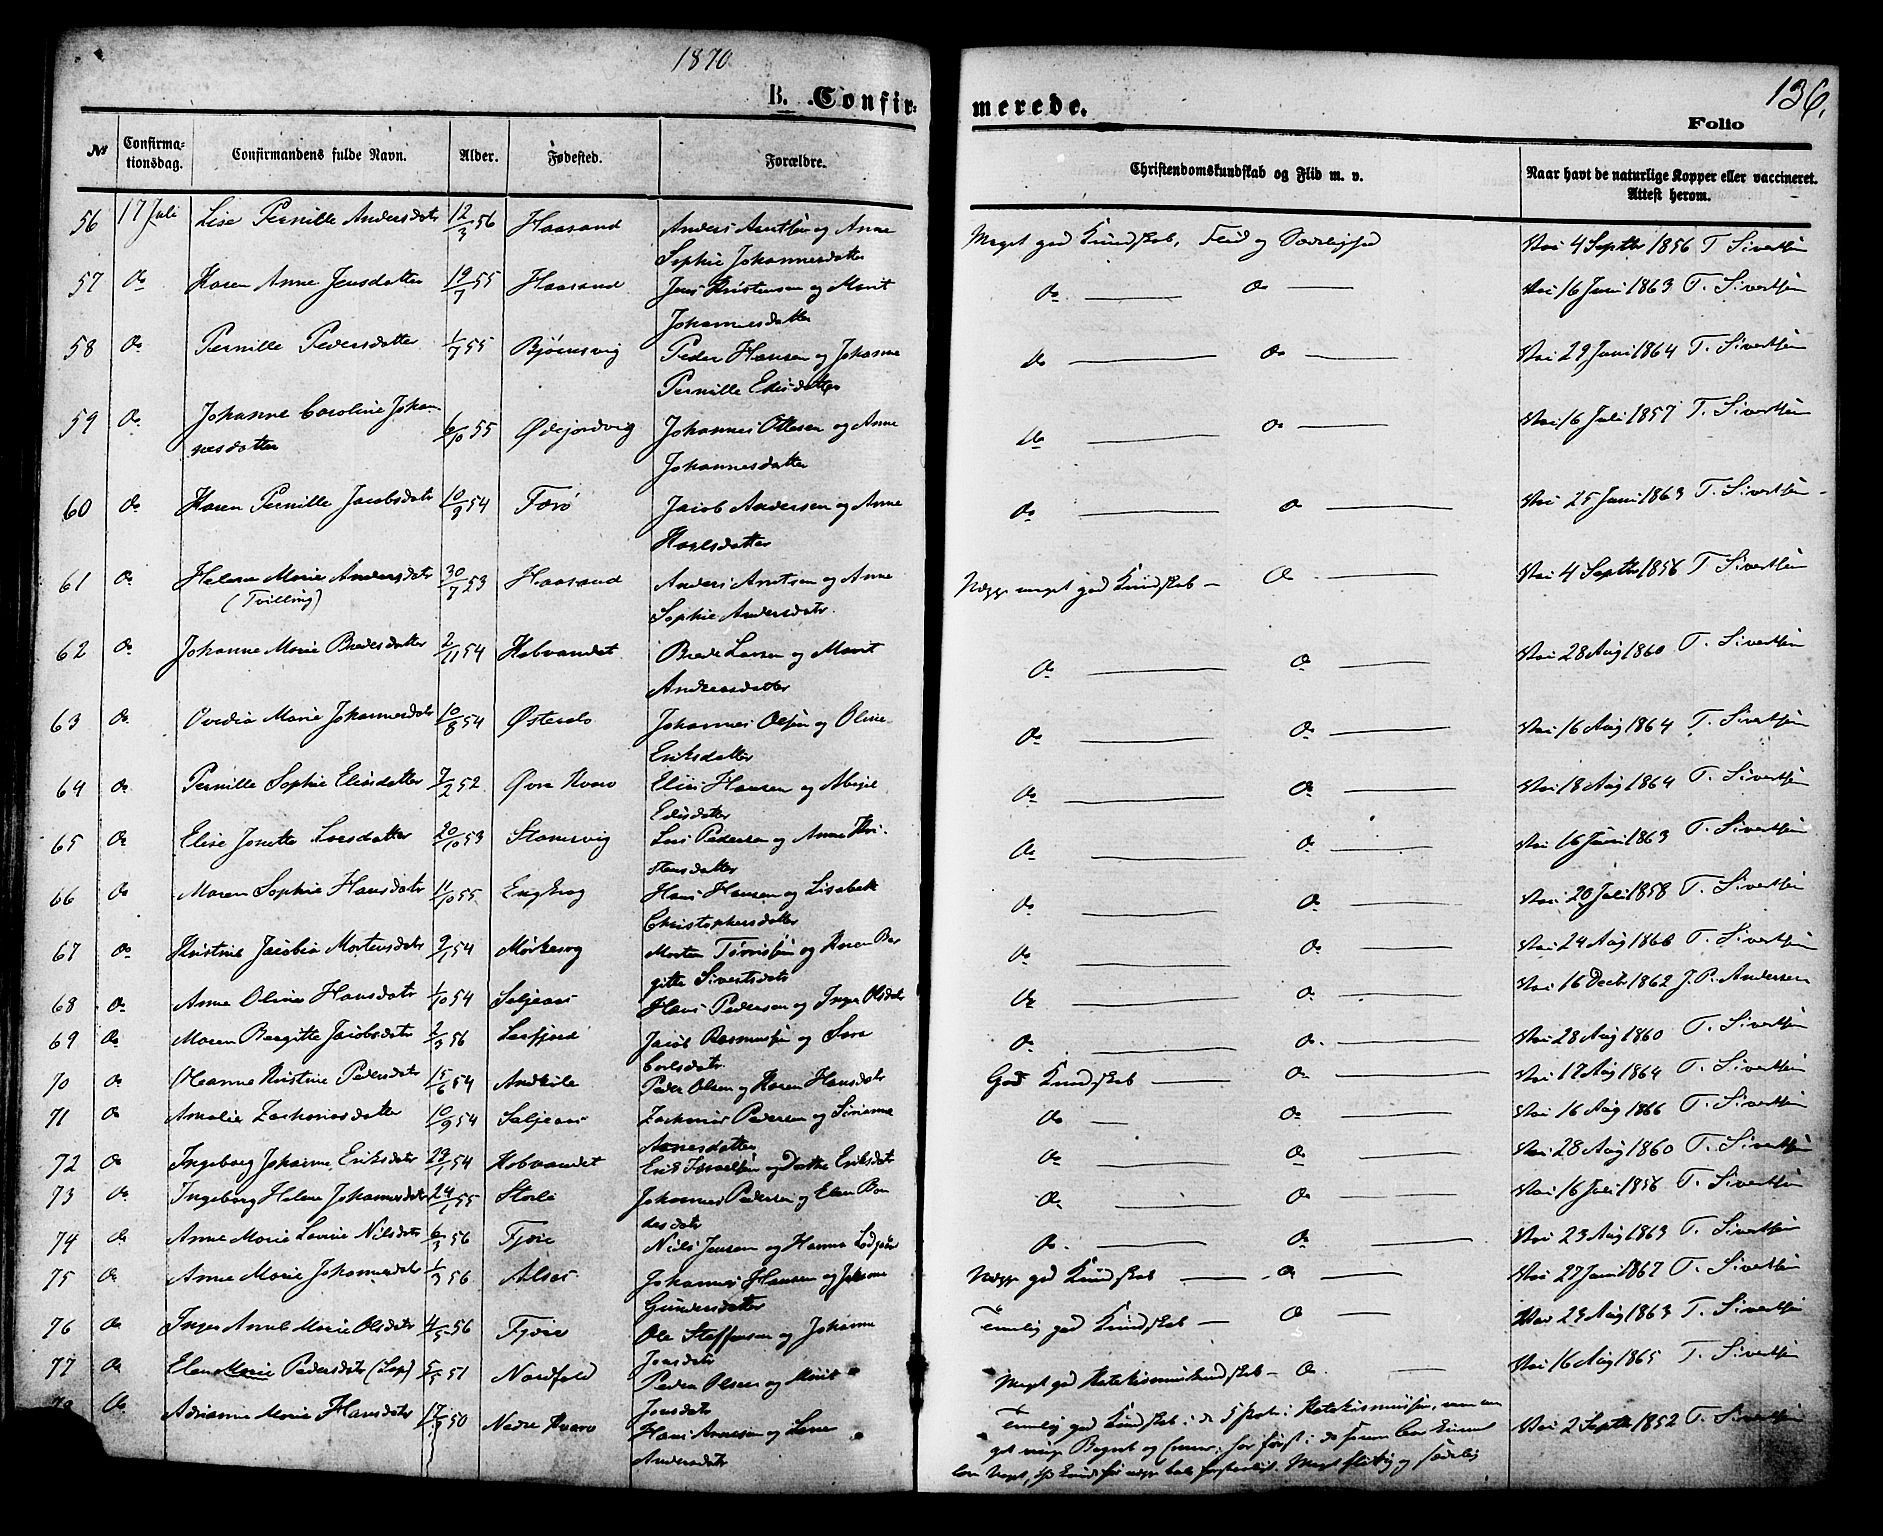 1870
136.
B. Confir-
merede.
Folio
No
Confirma-
tionsdag.
Confirmandens fulde Navn.
Alder.
Fødested.
Forældre.
Christendomskundskab og Flid m. v.
Naar havt de naturlige Kopper eller vaccineret.
Attest herom.
56 17 Juli Lise Pernille Andersdatr 12/3 56 Haasand Anders Arntsen og Anne
Sophie Johannesdatter
Meget god Kundskab, Flid og Sædelighed Vac 4 Septbr 1856 T. Sivertsen
57 Do Karen Anne Jensdatter 19/7 55 Haasand Jens Kristensen og Marit
Johannesdatter
Do Do Vac 16 Juni 1863 T. Sivertsen
58 Do Pernille Pedersdatter 1/7 55 Bjørnsvig Peder Hansen og Johanne
Pernille Edisdatter
Do Do Vac 29 Juni 1864 T. Sivertsen
59 Do Johanne Caroline Johan
nesdatter 6/10 55 Ødejordvig Johannes Ottesen og Anne
Johannesdatter
Do Do Vac 16 Juli 1857 T. Sivertsen
60 Do Karen Pernille Jacobsdatr 10/9 54 Færø Jacob Andersen og Anne
Karlsdatter
Do Do Vac 25 Juni 1863 T. Sivertsen
61 Do Helene Marie Andersdatr 30/7 53 Haasand Anders Arntsen og Anne
(Tvilling) Sophie Andersdatr.
Næppe meget god Kundskab Do Vac 4 Septbr 1856 T. Sivertsen
62 Do Johanne Marie Bredesdatter 2/11 54 Kobvandet Brede Larsen og Marit
Andreasdatter
Do Do Vac 28 Aug 1860 T. Sivertsen
63 Do Ovedia Marie Johannesdatr 10/8 54 Johannes Olsen og Oline
Eriksdatter
Do Do Vac 16 Aug 1864 T. Sivertsen
64 Do Pernille Sophie Elisdatter 7/2 52 Øvre Kvarv Elias Hansen og Abigil
Edisdatter
Do Do Vac 18 Aug 1864 T. Sivertsen
65 Do Elise Jonette Larsdatter 20/10 53 Lars Pedersen og Anne Kri-
stensdatter
Do Do Vac 16 Juni 1863 T. Sivertsen
66 Do Maren Sophie Hansdatr 11/10 55 Hans Hansen og Lisabeth
Christophersdatter
Do Do Vac 20 Juli 1858 T. Sivertsen
67 Do Kristine Jacobia Mortensdatr 9/1 54 Mørkesvg Morten Tørrissen og Karen Ber
gitte Sivertsdatr
Do Vac 24 Aug 1860 T. Sivertsen
68 Do Anne Oline Hansdatr 1/10 54 Hans Pedersen og Inger Olsdatr
Do Do Vac 16 Decbr 1862 J. P. Andersen
69 Do Maren Bergitte Jacobsdatr 2/3 56 Leirfjord Jacob Rasmussen og Sara
Carlsdatr
Do Do Vac 28 Aug 1860 T. Sivertsen
70 Do Kristine Pedersdatr 15/6 54 Andkilen Peder Olsen og Karen Hansdatr
God Kundskab Do Vac 17 Aug 1864 T. Sivertsen
71 Do Amalie Zachariasdatter 10/9 54 Zacharias Pedersen og Sirianna
Arnesdatter
Do Do Vac 16 Aug 1866 T. Sivertsen
72 Do Ingeborg Johanne Eriksdatr 29/1 54 Kobvandet Erik Israelsen og Dorthe Eriksdatr
Do Do Vac 28 Aug 1860 T. Sivertsen
73 Do Ingeborg Helene Johannesdatr 24/1 55 Storli Johannes Pedersen og Elen Bar
desdatr
Do Do Vac 16 Juli 1856 T. Sivertsen
74 Do Anne Marie Lovise Nilsdatr 6/3 56 Fjære Niels Jensen og Hanna
Do Do Vac 23 Aug 1863 T. Sivertsen
75 Do Anne Marie Johannesdatr 1/3 56 Alsos Johannes Hansen og Johanne
Gundersdatter
Næppe god Kundskab Do Vac 27 Juni 1867 T. Sivertsen
76 Do Inger Anne Marie Olsdatr 4/5 56 Fjære Ole Steffensen og Johanne
Jonsdatr
Temlig god Kundskab Do Vac 23 Aug 1863 T. Sivertsen
77 Do Elen Marie Pedersdatr (Lap) 5/5 51 Nordfold Peder Olsen og Marit
Jonsdatr
Meget god Katekismuskundskab Do Vac 16 Aug 1865 T. Sivertsen
Do Adrianne Marie Hansdatr 17/3 50 Nedre Kvarv Hans Arnesen og Lene
Andersdatr
Temlig god Kundskab i de 5 Parter i Katekismusen, men
Vac 2 Septbr 1852 T. Sivertsen
Meget flittig og sædelig